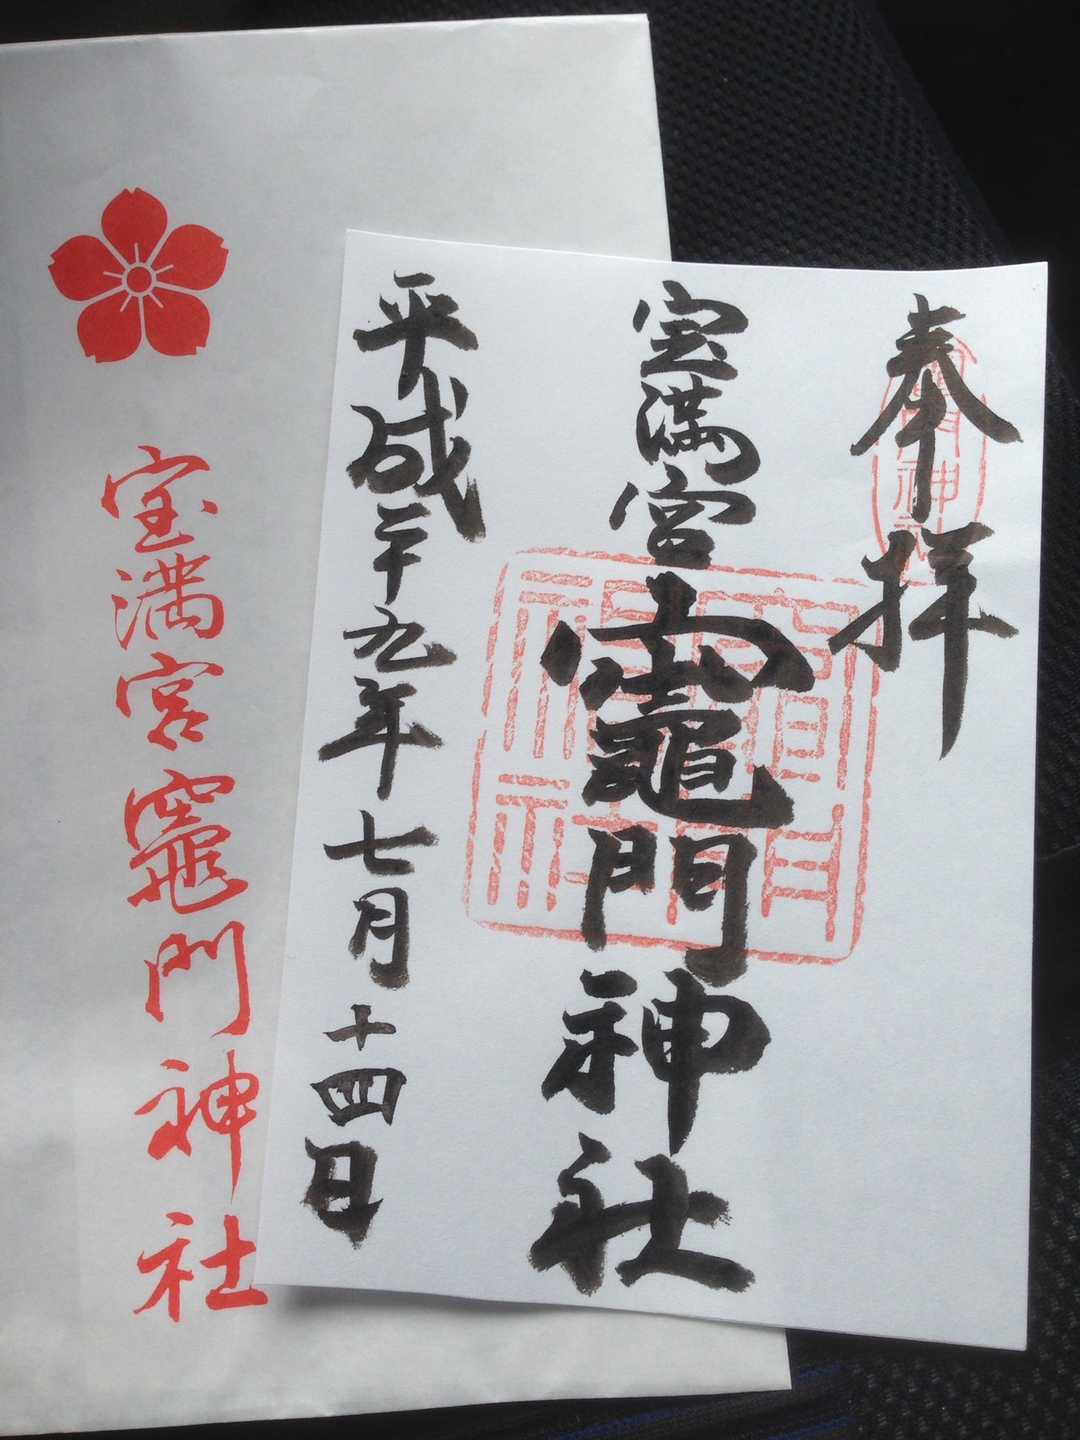 奉拝
宝満宮竈門神社
平成二十九年七月十四日
宝満宮竈門神社